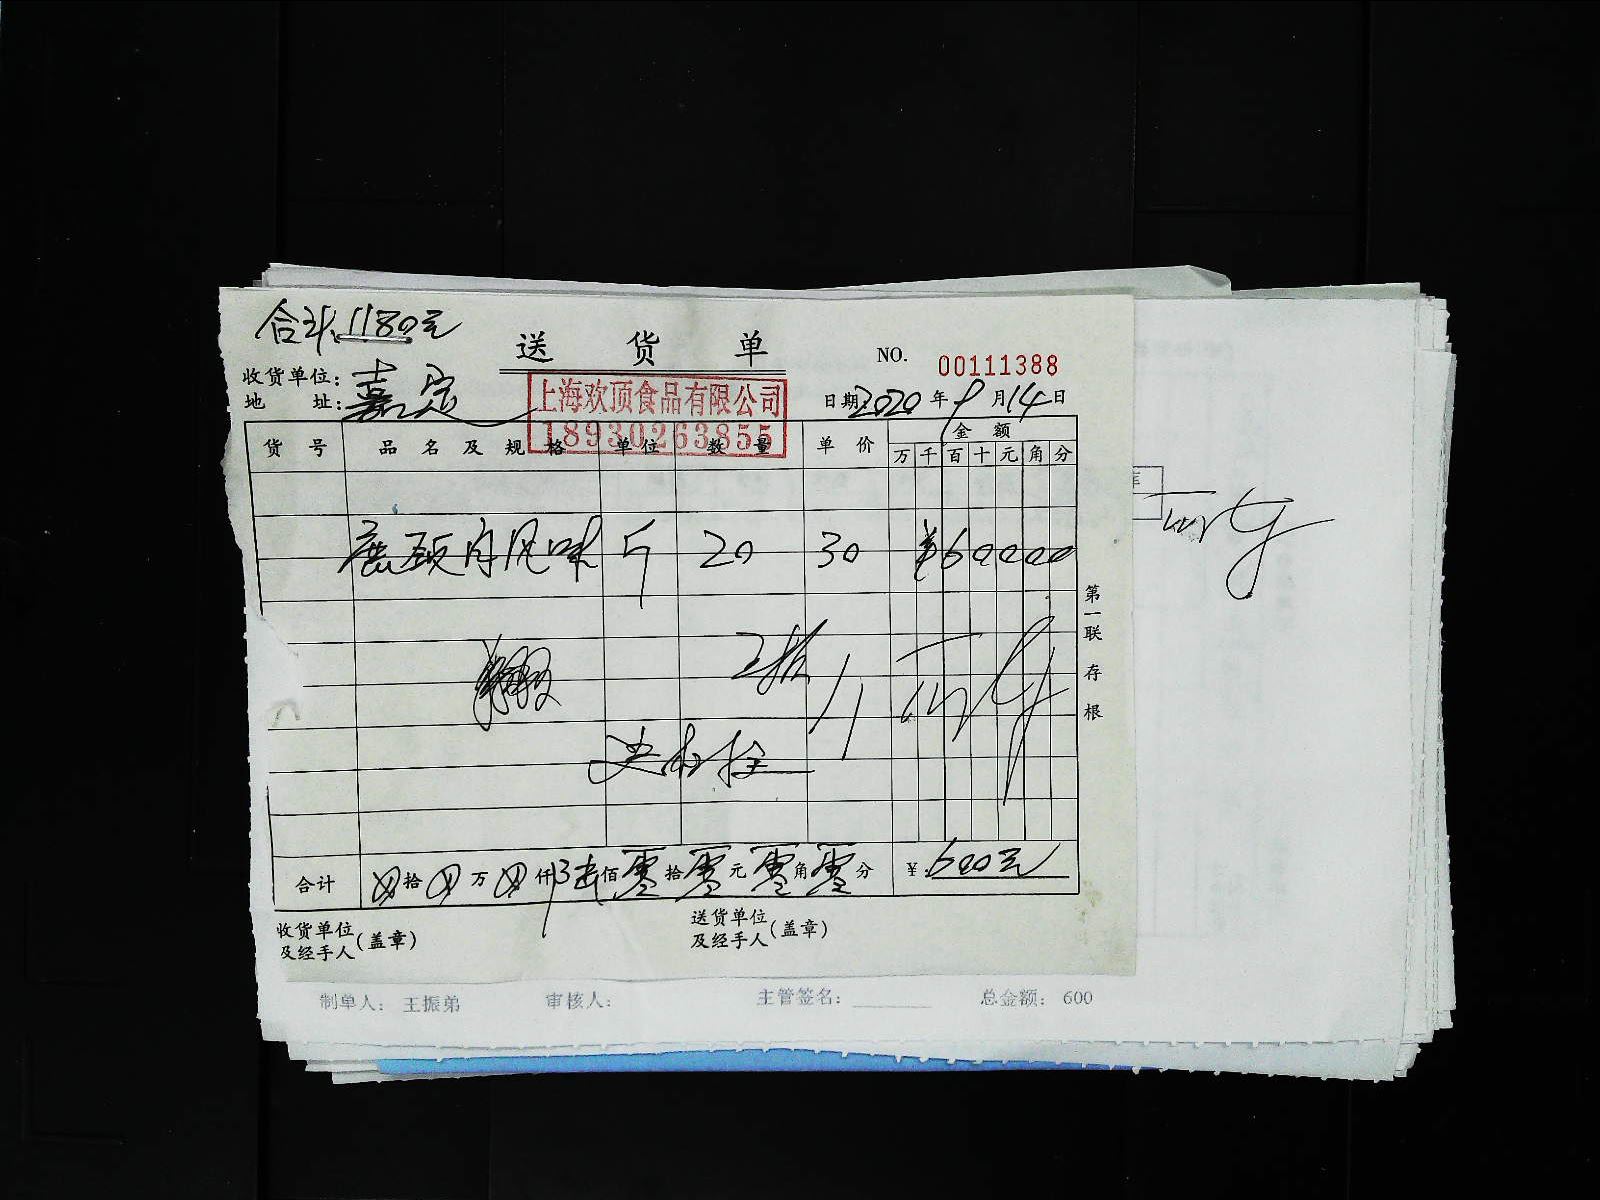 合计1180元
送货单
NO. 00111388
收货单位:
地址:
嘉定
上海欢顶食品有限公司
18930263855
日期:2020年9月14日
货号 品名及规格 单位 数量 单价 金额
万 千 百 十 元 角 分
风味 斤 20 30 ¥60000
第一联 存根
合计 拾 万 仟 陆佰零拾零元零角零分 ¥:600元
收货单位
及经手人(盖章)
送货单位
及经手人(盖章)
制单人: 王振弟 审核人: 主管签名: 总金额: 600